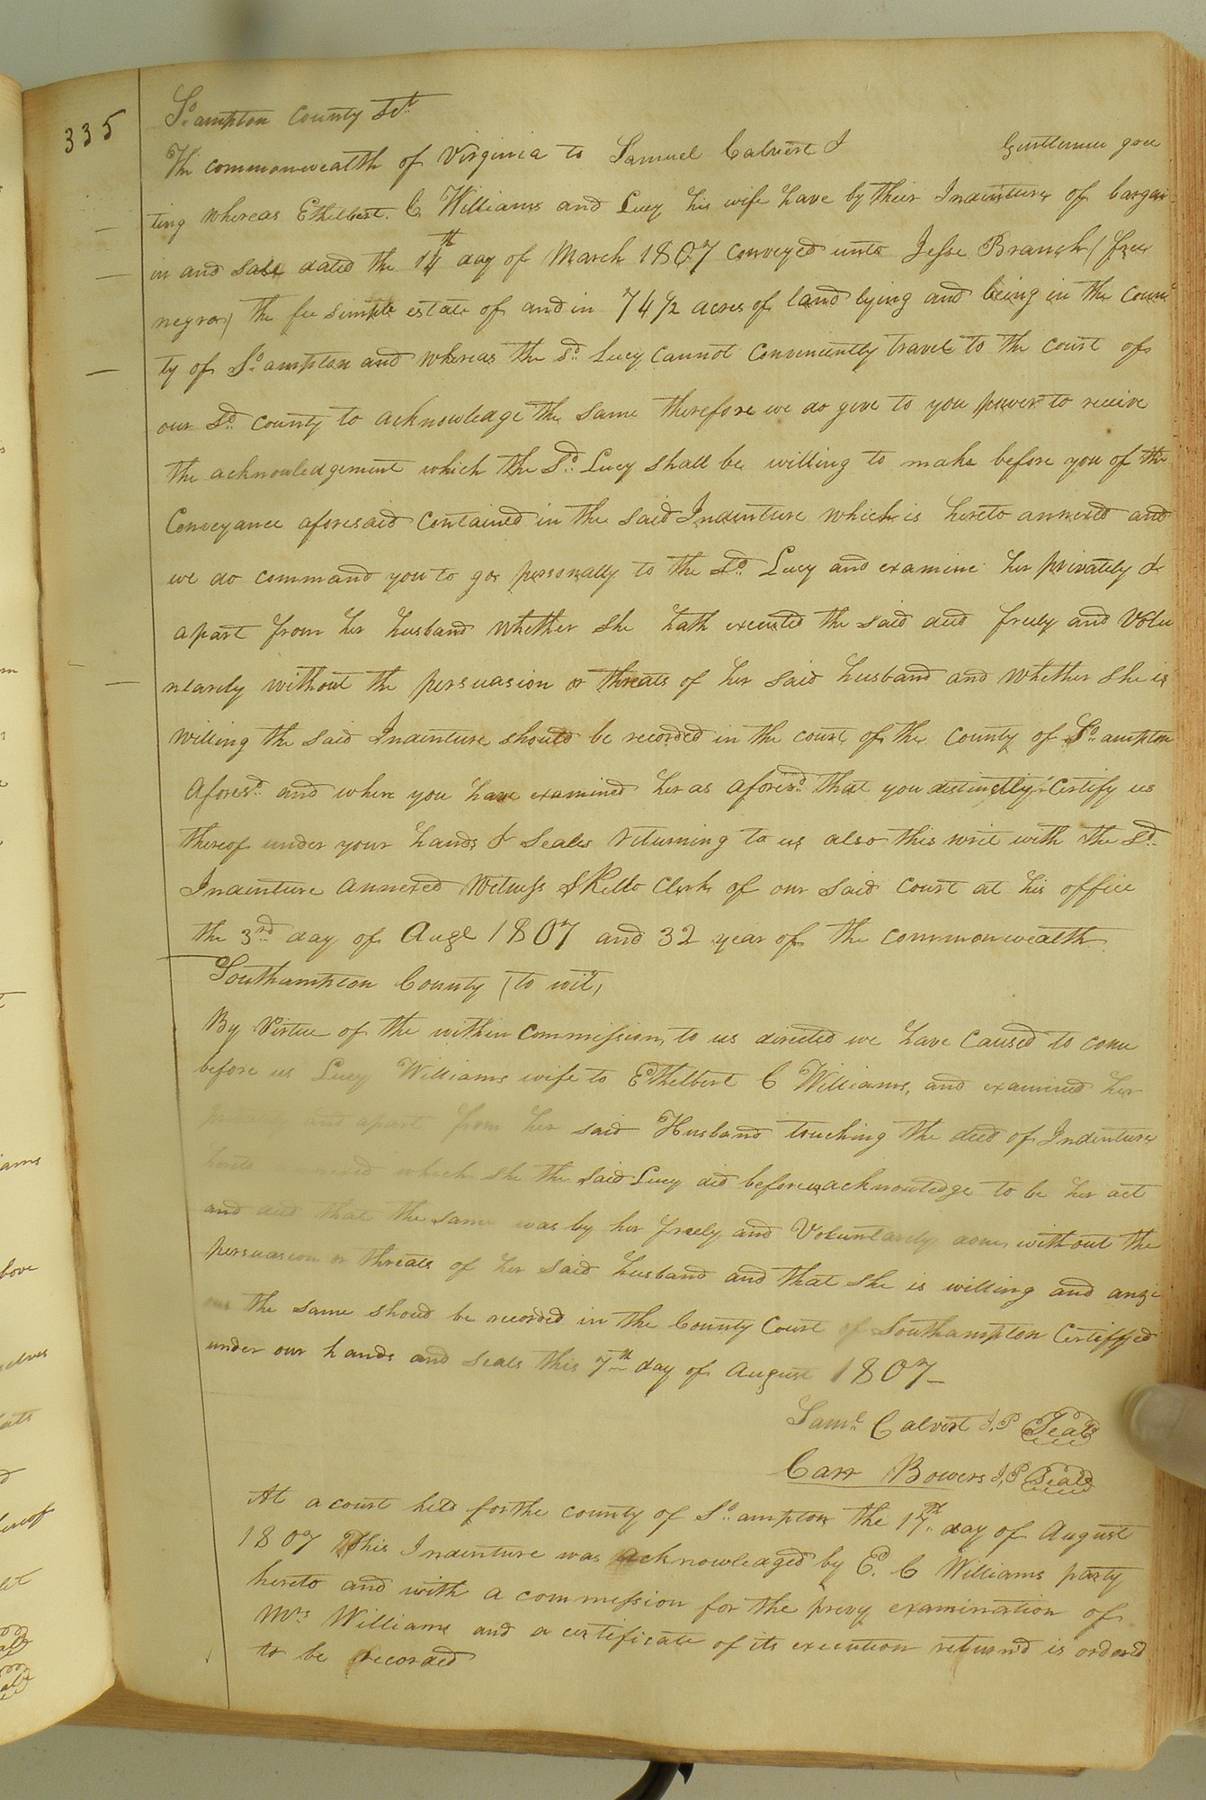 335
So. ampton County Sct
The commonwealth of Virginia to Samuel Calvert & Gentlemen gree
ting whereas Ethelbert. C Williams and Lucy his wife have by their Indenture of bargai
n and sale dated the 14th day of March 1807 conveyed unto Jesse Branch (free
negro) the fee simple estate of and in 74 1/2 acres of land lying and being in the Coun
ty of So. ampton and whereas the sd. Lucy cannot conveniently travel to the court of
our sd. County to acknowledge the same therefore we do give to you power to receive
the acknowledgement which the sd. Lucy shall be willing to make before you of the
Conveyance aforesaid Contained in the said Indenture which is hereto annexed and
we do command you to go personally to the sd. Lucy and examine her privately &
apart from her husband whether she hath executed the said deed freely and Volu
ntarely without the persuasion or threats of her said husband and whether she is
willing the said Indenture should be recorded in the court of the County of So. ampton
aforesd. and when you have examined her as aforesd. that you distinctly Certify us
thereof under your hands & Seales returning to us also this writ with the sd.
Indenture annexed Witness S Kello Clerk of our said Court at his office
the 3rd. day of Augt 1807 and 32 year of the commonwealth
Southampton County (to wit)
By Virtue of the within Commission, to us directed we have Caused to come
before us Lucy Williams wife to Ethelbert C Williams, and examined her
and apart from her said Husband touching the deed of Indenture
hereto annexed which she the said Lucy did before us acknowledge to be her act
and deed that the same was by her freely and Voluntarely done, without the
persuasion or threats of her said husband and that she is willing and anxi
ous the same shoud be recorded in the County Court of Southampton Certifyed
under our hands and Seals this 7th day of August 1807–
Saml. Calvert J,P Seal
Carr Bowers J,P Seal
At a court held for the county of So. ampton the 17th. day of August
1807 This Indenture was acknowledged by E. C Williams party
hereto and with a commission for the privy examination of
Mrs Williams and a certificate of its execution returnd is ordered
to be recorded